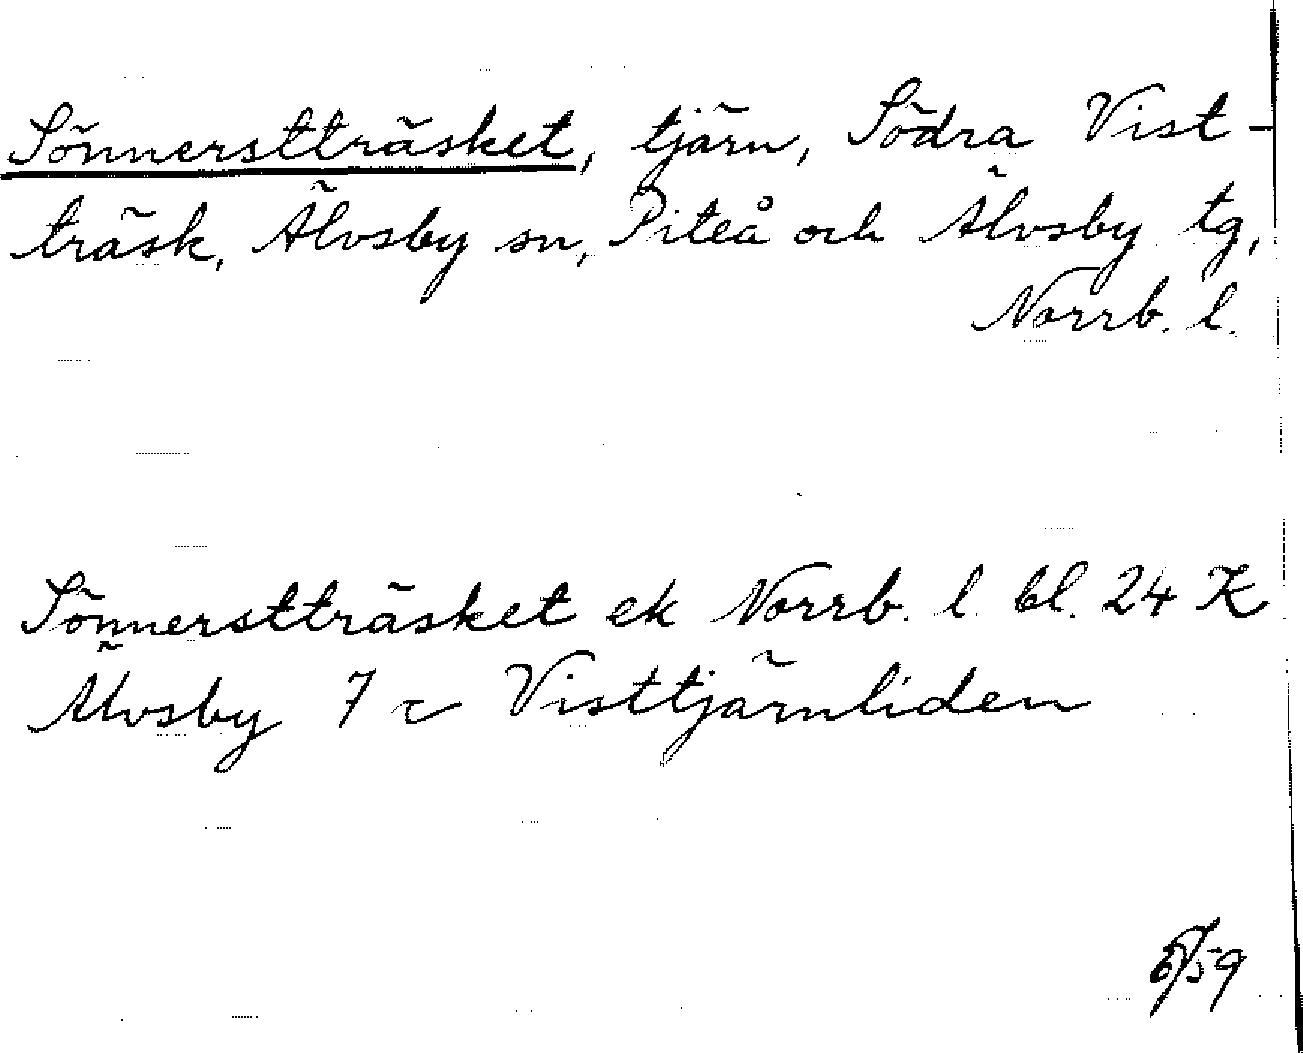 Sönnerstträsket, tjärn, Södra Vist-
träsk, Älvsby sn, Piteå och Älvsby tg,
Norrb. l.
Sönnerstträsket ek Norrb. l. bl. 24 K
Älvsby 7 c Visttjärnliden